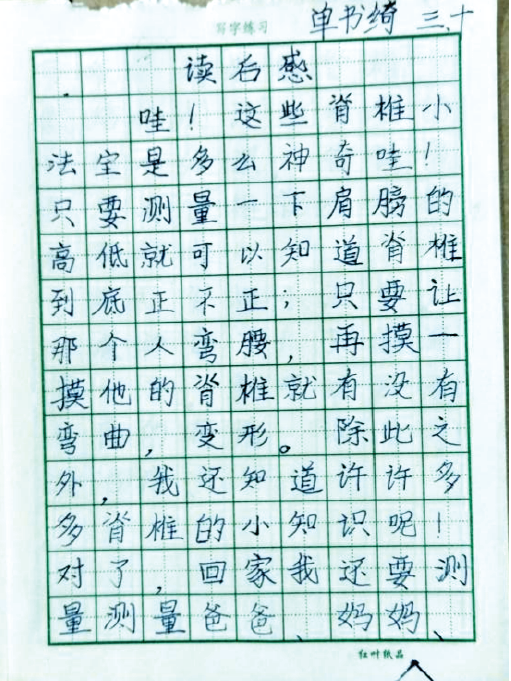 写字练习
单书绮 三、十
读后感
哇！这些脊椎小
法宝是多么神奇哇！
只要测量一下肩膀的
高低就可以知道脊椎
到底正不正；只要让
那个人弯腰，再摸一
摸他的脊椎就有没有
弯曲，变形。除此之
外，我还知道许许多
多脊椎的小知识呢！
对了，回家我还要测
量测量爸爸、妈妈、
红叶纸品